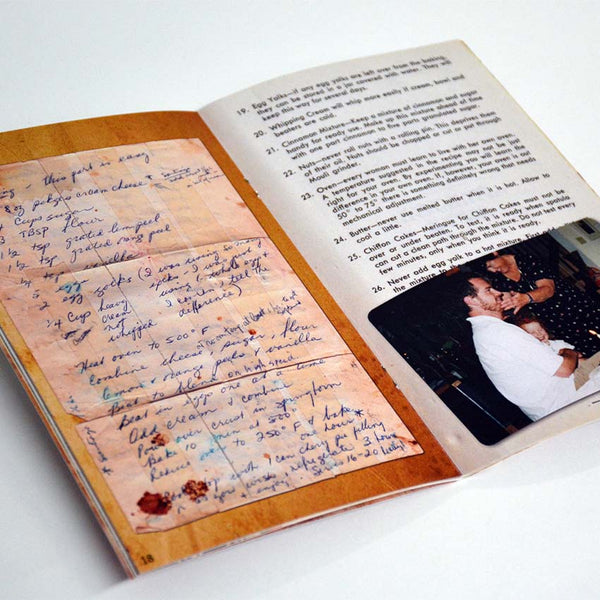 ng, this part is easy
8oz pkgs cream cheese *
Cups sugar
3 TBSP flour
1 ½ tsp grated lemon peel
1 ½ tsp grated orang peel
¼ tsp
5 egg
¼ Cup heavy cream
not whipped
difference)
Heat oven to 500°F
Combine cheese, sugar, flour
lemon & orang peels & vanilla
Beat to blend on high speed.
Beat in eggs one at a time
Add cream & combine
Pour over crust in springform
Bake 10 min at 500°
Reduce oven to 250°F & bake
hours *
with 1 can cherry pie filling
refrigerate 3 hours
& enjoy! Serves 16-20
18
19. Egg Yolks—if any egg yolks are left over from the baking,
they can be stored in a jar covered with water. They will
keep this way for several days.
20. Whipping Cream will whip more easily if cream, bowl and
beaters are cold.
21. Cinnamon Mixture—Keep a mixture of cinnamon and sugar
handy for ready use. Make up this mixture ahead of time
with one part cinnamon to five parts granulated sugar.
22. Nuts—never roll nuts with a rolling pin. This deprives them
of their oil. Nuts should be chopped or cut or put through
Mouli grinder.
23. Oven—every woman must learn to live with her own oven.
A temperature suggested in the recipe may not be just
right for your oven. By experimenting you will learn the
difference in your own oven. If, however, your oven is out
50° to 75° there is something definitely wrong that needs
mechanical adjustment.
24. Butter—never use melted butter when it is hot. Allow to
cool a little.
25. Chiffon Cakes—Meringue for Chiffon Cakes must not be
over or under beaten. To test, it is ready when spatula
can cut a clean path through the mixture. Do not test every
few minutes, only when you think it is ready.
26. Never add egg yolk to a hot mixture
the mixture to